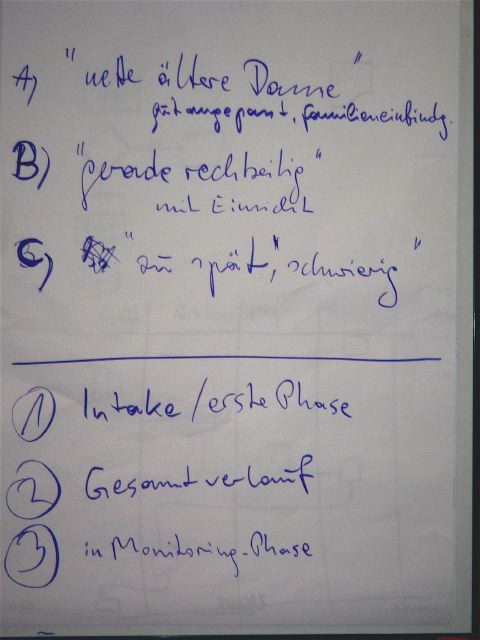 A) "nette ältere Dame"
gut angepasst, familieneinbindg.
B) "gerade rechtzeitig"
mit Einsicht
C) "zu spät", "schwierig"
1 Intake / erste Phase
2 Gesamtverlauf
3 in Monitoring-Phase